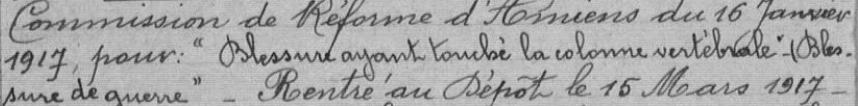 Commission de Réforme d'Amiens du 16 Janvier
1917, pour: "Blessure ayant touché la colonne vertébrale"-(Bles-
sure de guerre" - Rentré au Dépôt le 15 Mars 1917 -